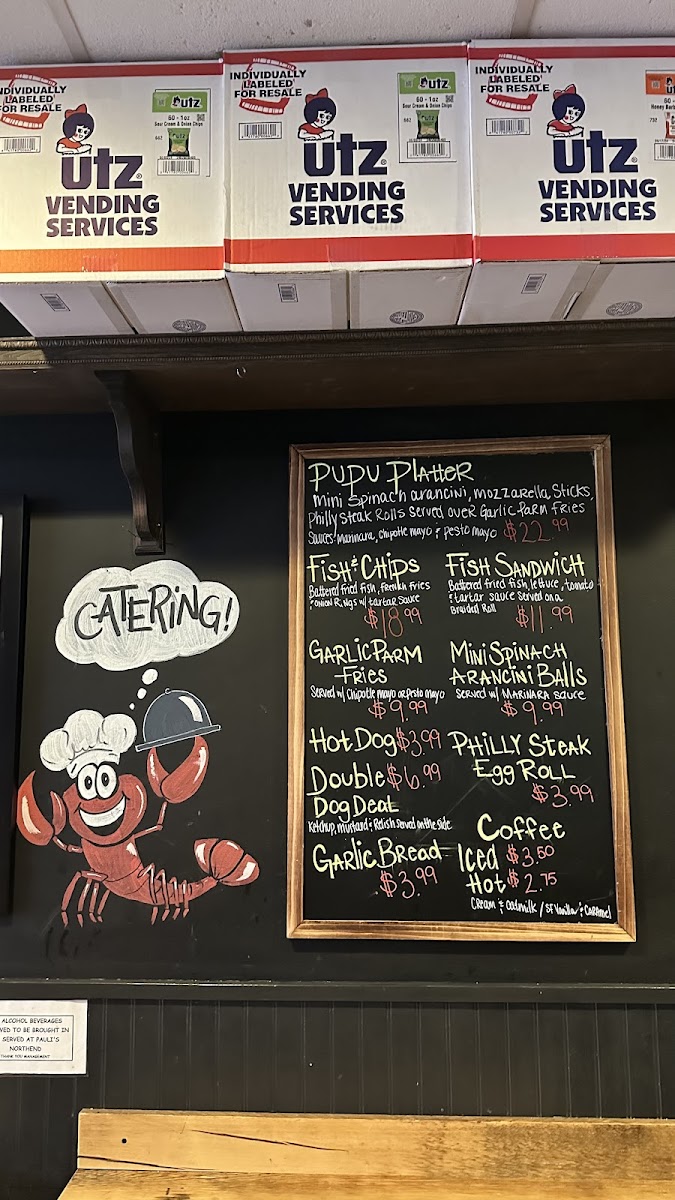 INDIVIDUALLY
LABELED
FOR RESALE
utz
60 - 1oz
Sour Cream & Onion Chips
662
utz®
VENDING
SERVICES
INDIVIDUALLY
LABELED
FOR RESALE
utz
60 - 1oz
Sour Cream & Onion Chips
662
utz®
VENDING
SERVICES
INDIVIDUALLY
LABELED
FOR RESALE
utz
60 - 1oz
Honey Barb
732
utz®
VENDING
SERVICES
CATERING!
PUPU PlAtteR
mini Spinach arancini, mozzarella Sticks,
Philly steak Rolls served over Garlic Parm Fries
Sauces: marinara, chipotle mayo & pesto mayo $22.99
FisH & CHips
Battered fried fish, french fries
& onion Rings w/ tartar sauce
$18.99
FisH SANDWICH
Battered fried fish, lettuce, tomato
& tartar sauce served on a
Braided Roll
$11.99
GARLIC PARM
Fries
Served w/ Chipotle mayo or Pesto mayo
$9.99
Mini SPiNACH
ARANCiNi BAlls
SERVED w/ MARINARA sauce
$9.99
Hot Dog $3.99
Double $6.99
DoG DeaL
Ketchup, mustard & Relish served on the side
PHiLLY Steak
Egg RoLL
$3.99
GARlic BReAD
$3.99
Coffee
Iced $3.50
Hot $2.75
CReam & oatmilk / SF Vanilla & CARAmel
ALCOHOL BEVERAGES
VED TO BE BROUGHT IN
SERVED AT PAULI'S
NORTHEND
THANK YOU MANAGEMENT